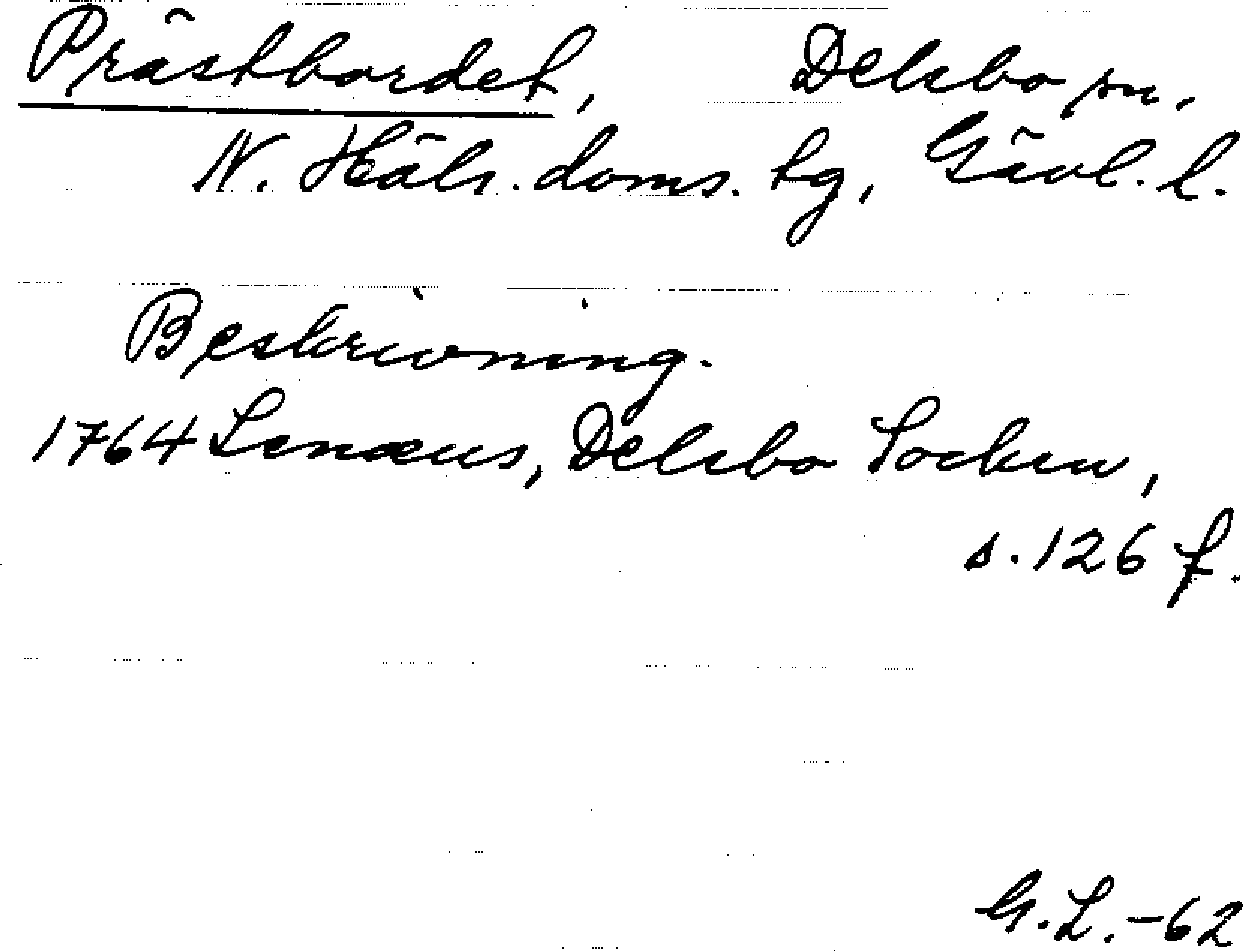 Prästbordet, Delsbo sn.
N. Häls. doms. tg, Gävl. l.
Beskrivning.
1764 Lenæus, Delsbo Socken,
s. 126 f.
G. L. -62